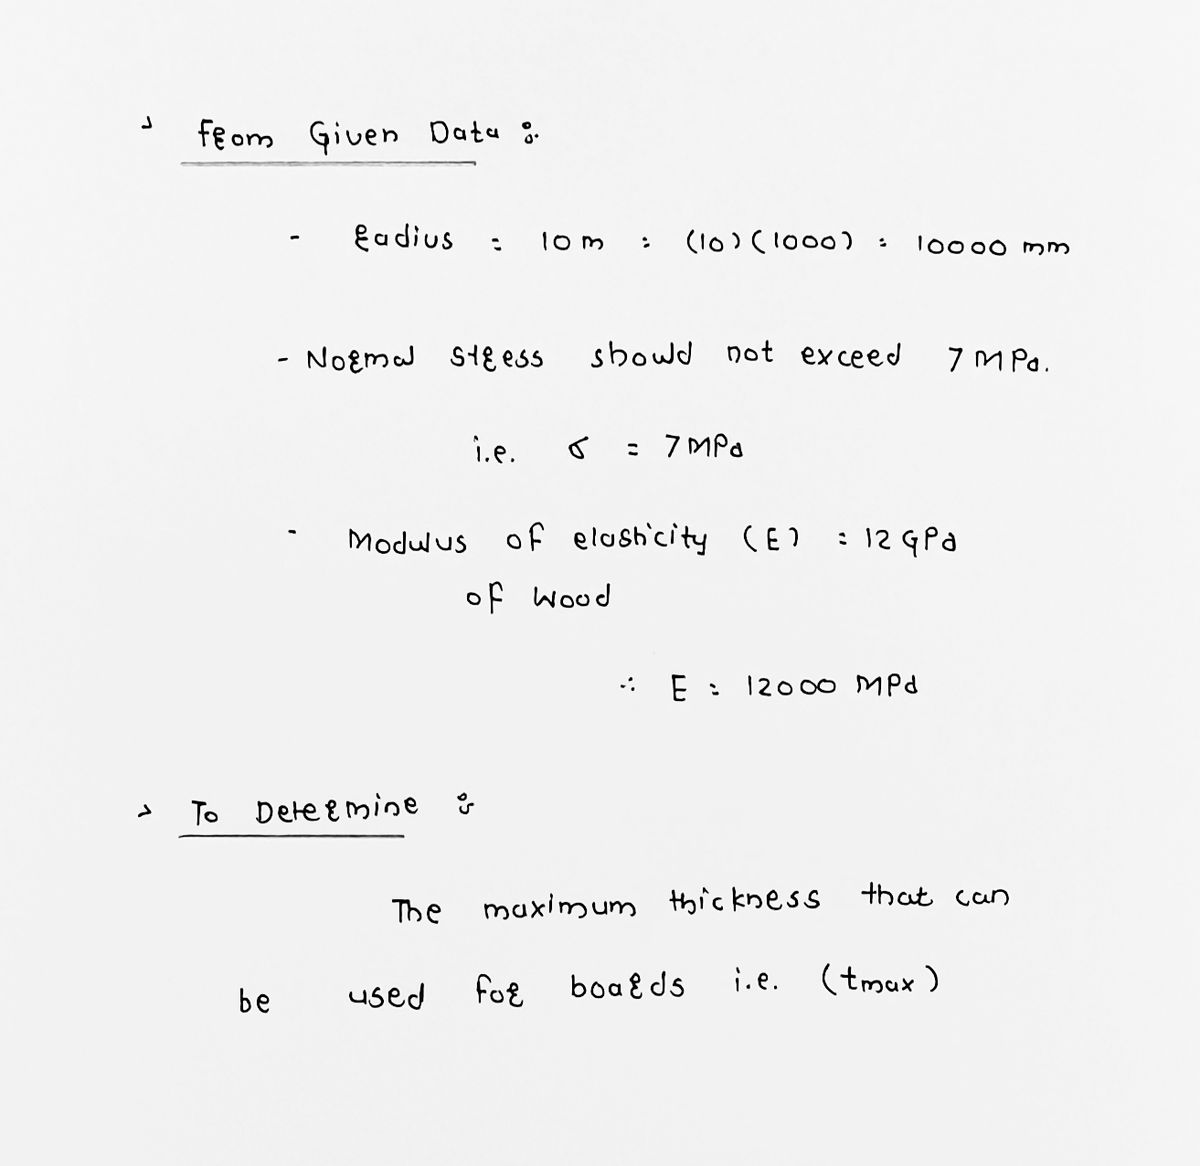 > From Given Data :-
- Radius = 10 m = (10) (1000) = 10000 mm
- Normal stress should not exceed 7 MPa.
i.e. σ = 7 MPa
- Modulus of elasticity (E) = 12 GPa
of wood
∴ E = 12000 MPa
> To Determine :-
The maximum thickness that can
be used for boards i.e. (tmax)